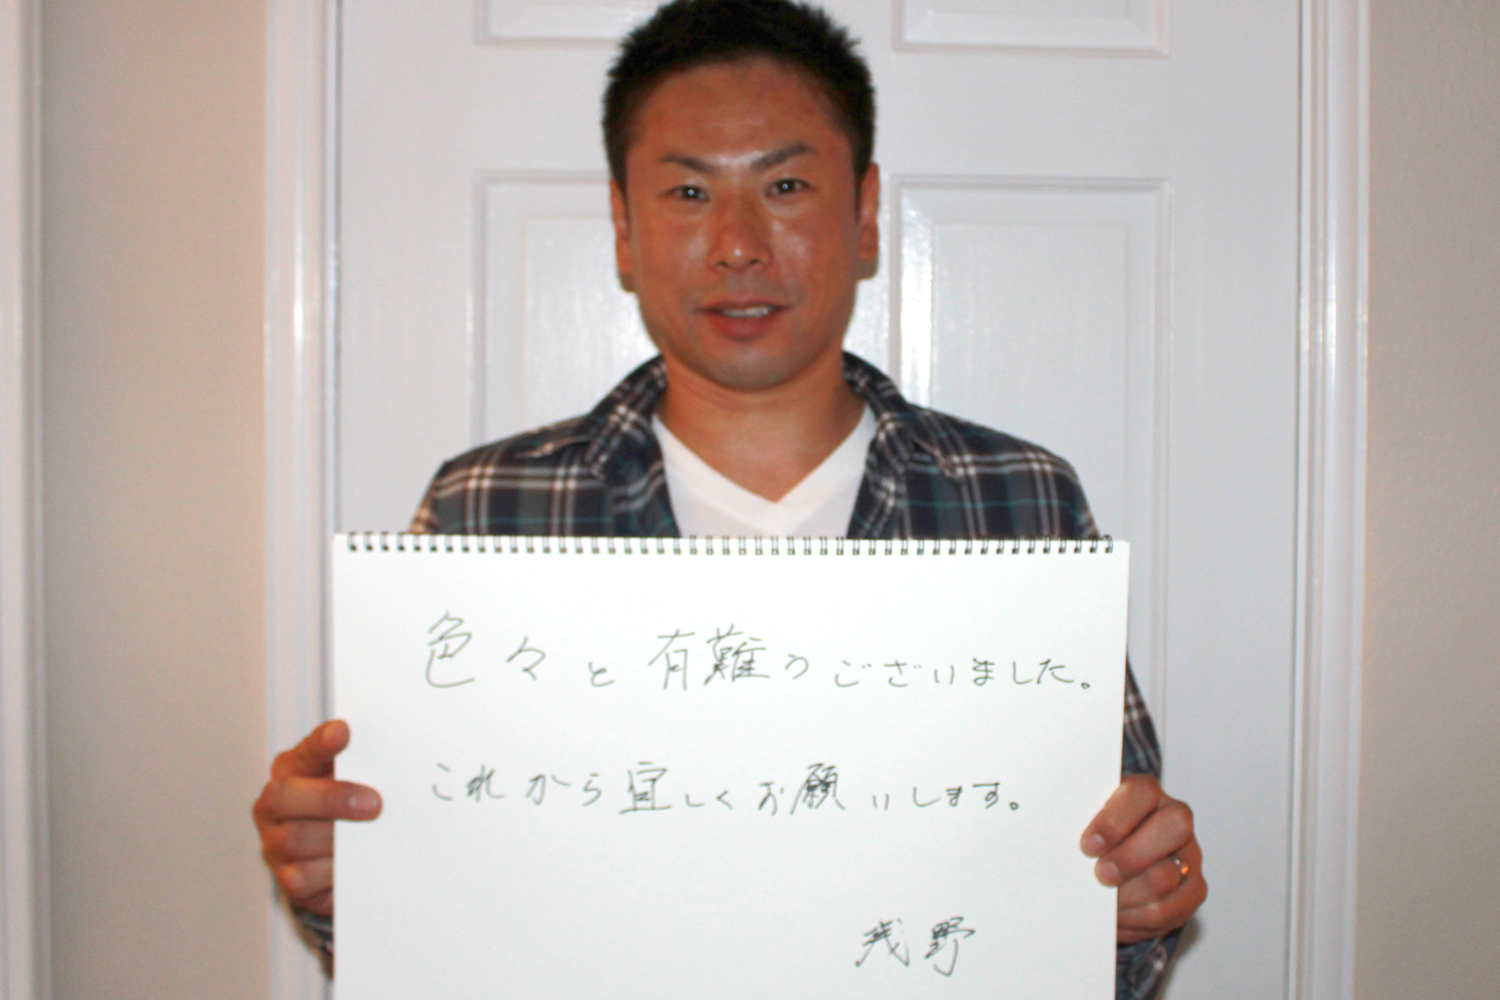 色々と有難うございました。
これから宜しくお願いします。
浅野